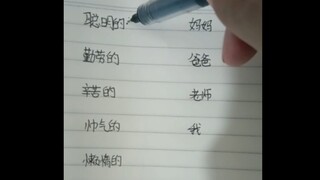 聪明的 妈妈
勤劳的 爸爸
辛苦的 老师
帅气的 我
懒惰的